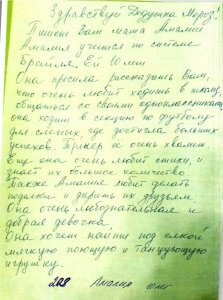 Здравствуй Дедушка Мороз!
Пишет Вам мама Амалии
Амалия учится по системе
Брайля. Ей 10 лет
Она просила рассказать Вам,
что очень любит ходить в школу,
общаться со своими одноклассниками,
она ходит в секцию по футболу
для слепых, где достигла больших
успехов. Тренер её очень хвалит
Еще она очень любит стихи, и
знает их большое количество
также Амалия любит делать
поделки и дарить их друзьям.
Она очень любознательная и
добрая девочка.
Она хочет найти под елкой
мягкую поющую и танцующую
игрушку.
Амалия 10 лет